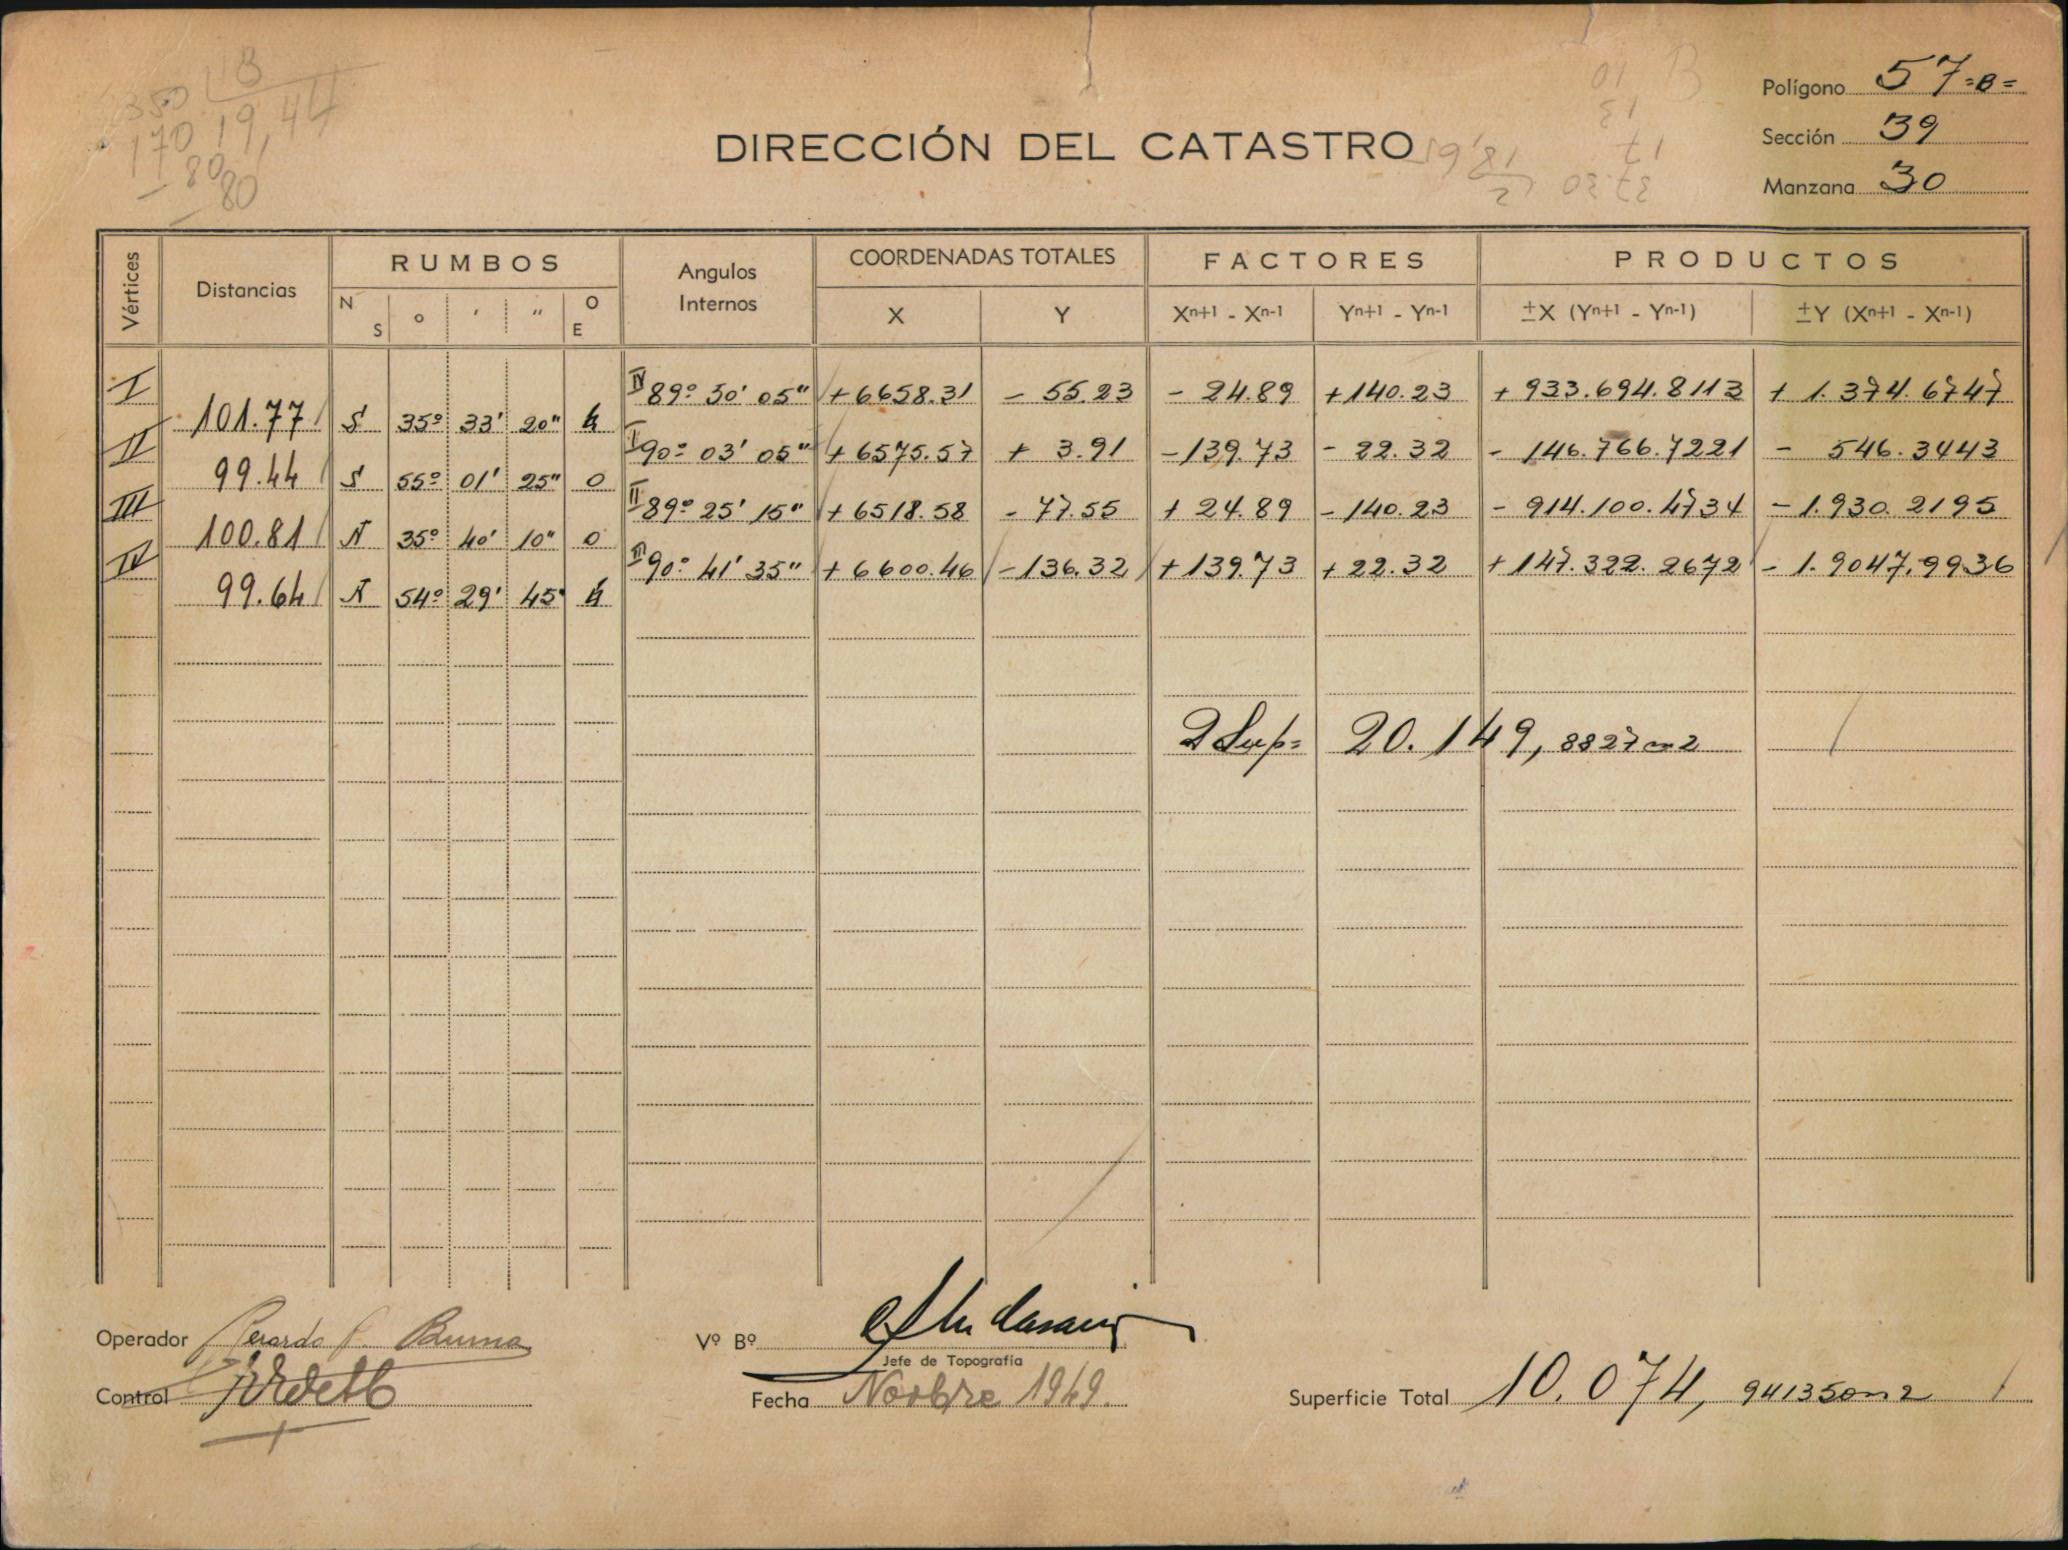 350 18
170 19,44
80
80
Polígono 57=B=
Sección 39
Manzana 30
DIRECCIÓN DEL CATASTRO
Vértices Distancias RUMBOS Angulos Internos COORDENADAS TOTALES FACTORES PRODUCTOS
N S o ' " O E X Y Xn+1 - Xn-1 Yn+1 - Yn-1 ±X (Yn+1 - Yn-1) ±Y (Xn+1 - Xn-1)
I IV 89º 50' 05" +6658.31 - 55.23 - 24.89 +140.23 + 933.694.8113 + 1.374.6747
101.77 S 35º 33' 20" E
II I 90º 03' 05" +6575.57 + 3.91 -139.73 - 22.32 - 146.766.7221 - 546.3443
99.44 S 55º 01' 25" O
III II 89º 25' 15" +6518.58 - 77.55 + 24.89 -140.23 - 914.100.4734 -1.930.2195
100.81 N 35º 40' 10" O
IV III 90º 41' 35" +6600.46 -136.32 +139.73 +22.32 +147.322.2672 - 1.9047.9936
99.64 N 54º 29' 45" E
2 Sup= 20.149, 8827 m2
Operador Gerardo
Vº Bº
Jefe de Topografía
Control
Fecha Novbre 1949.
Superficie Total 10.074, 941350m2